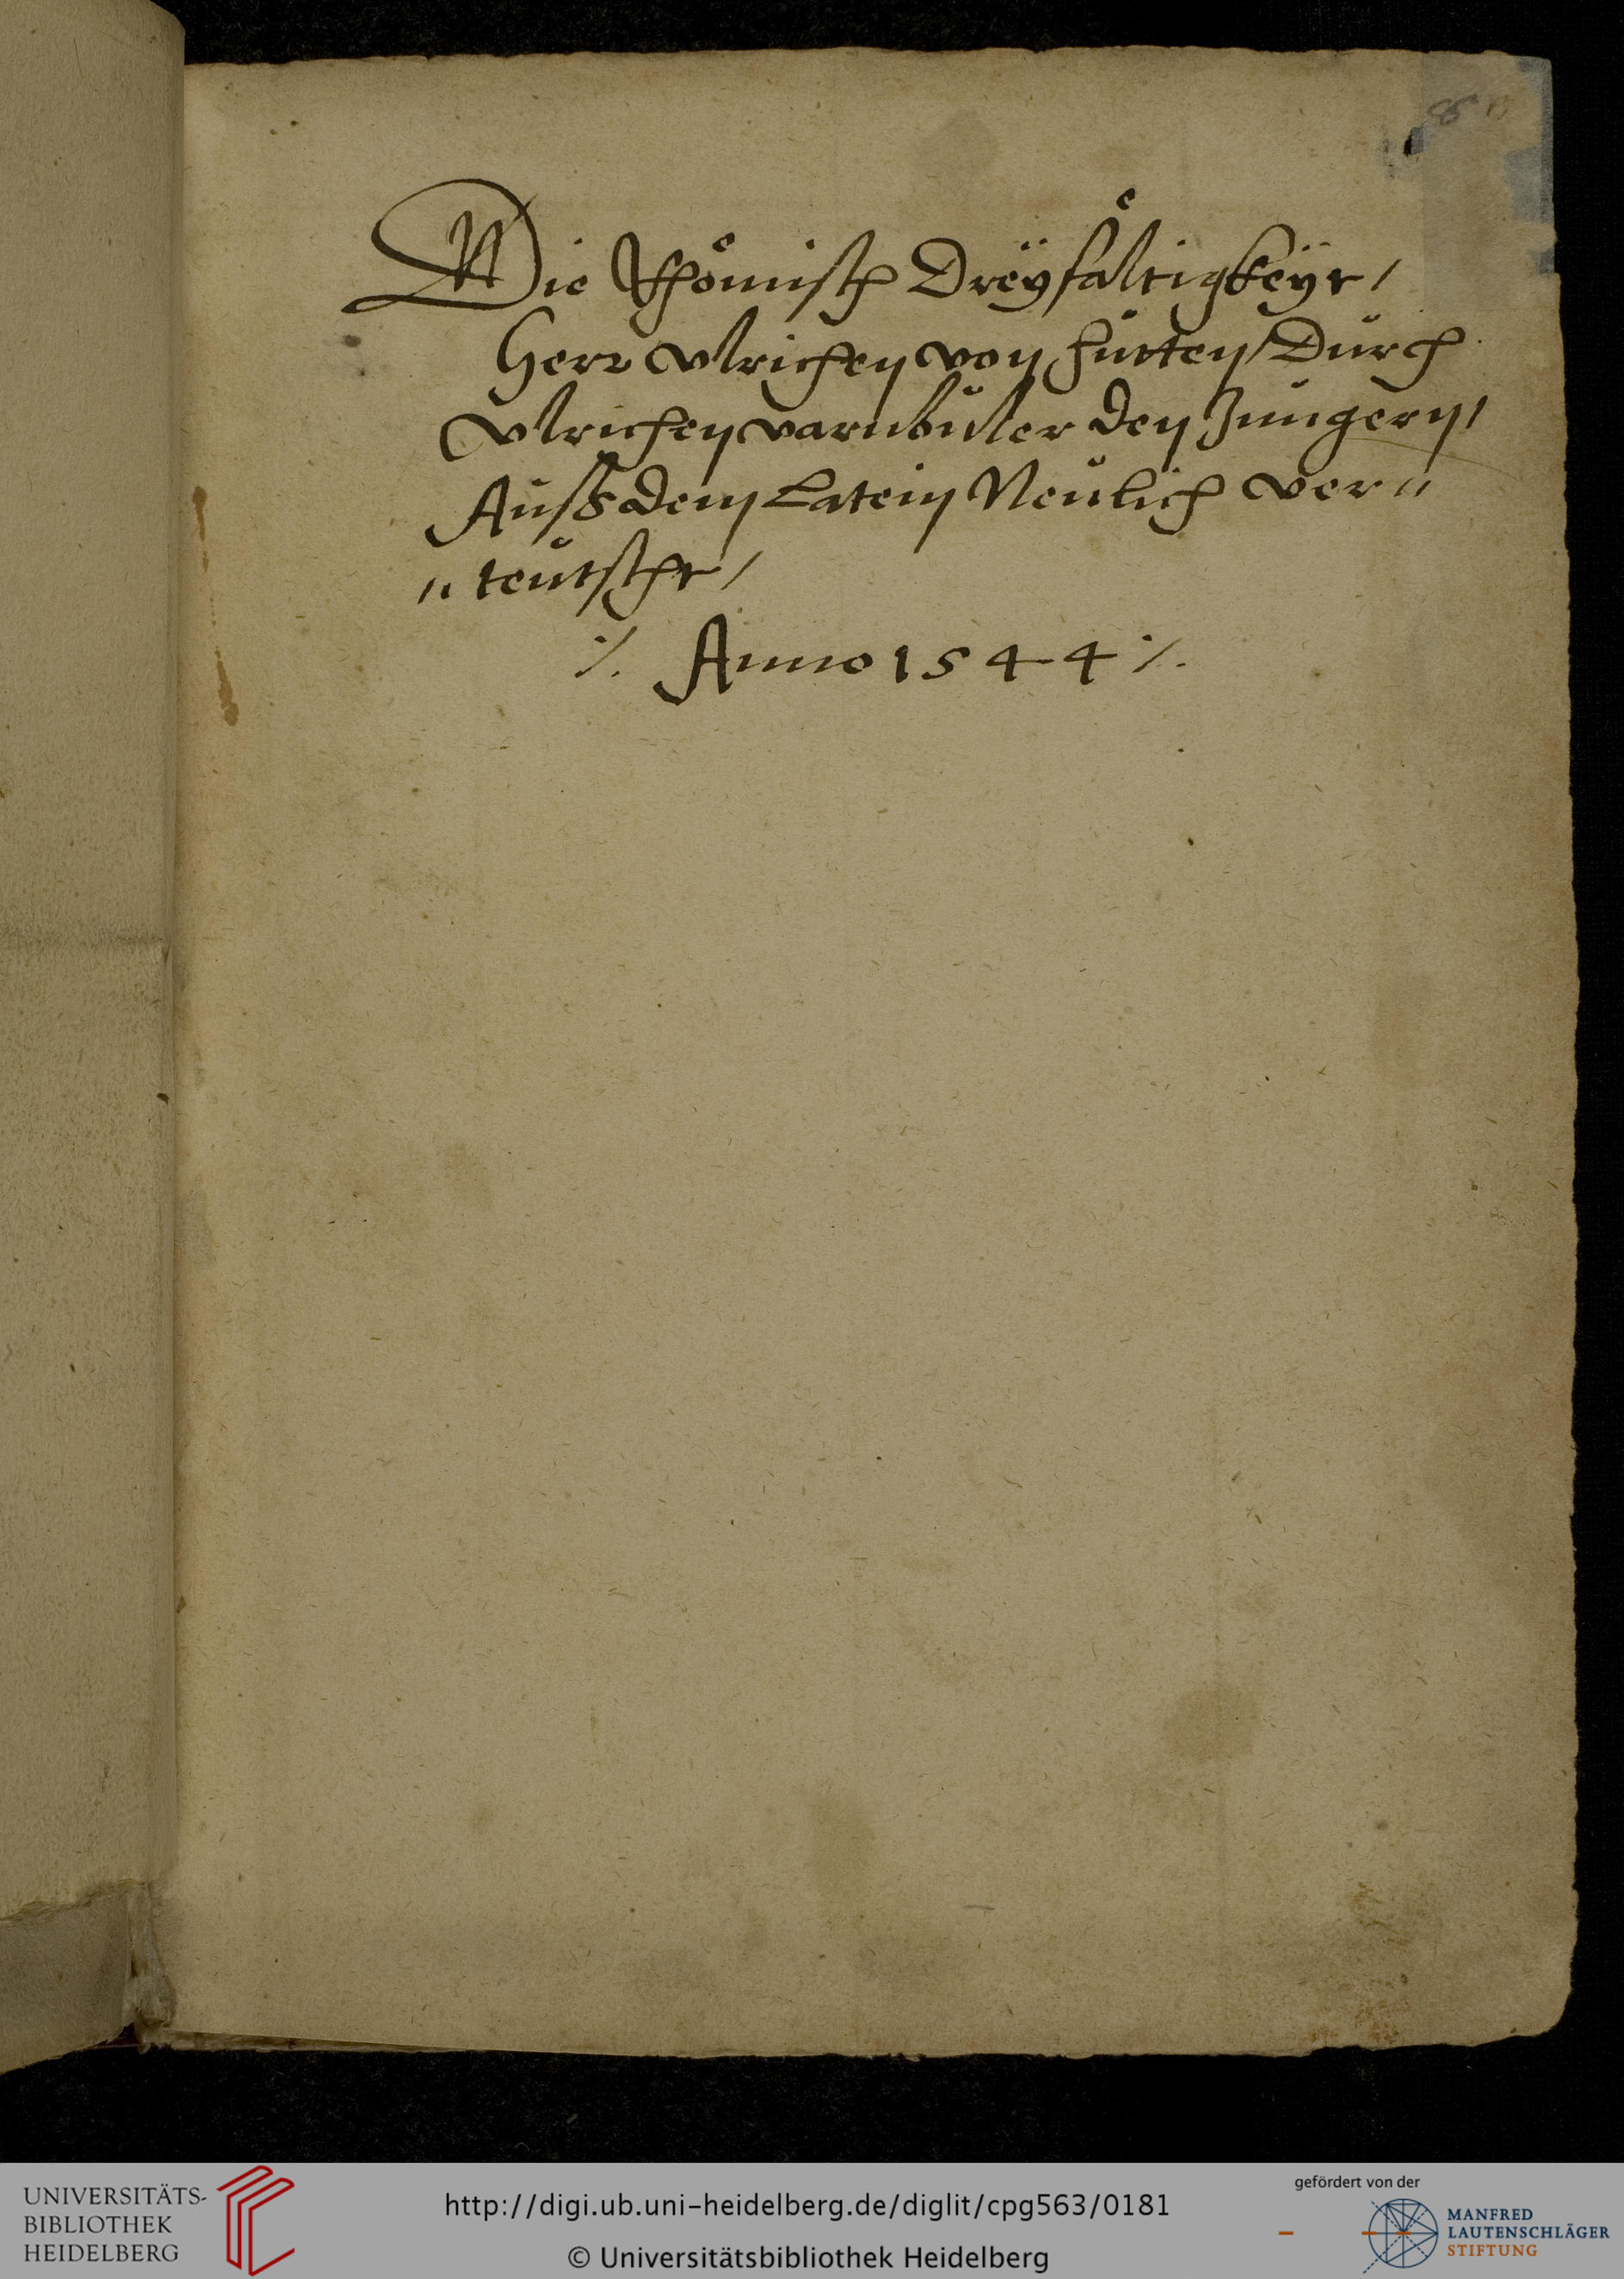 Die Rhömisch Dreÿfåltigkeÿt /
Herr Vlrichen von hůtten / Důrch
Vlrichen varnbůler den Jůngern /
Außdem Latein Neůlich ver〃
〃teůtscht /
·/. Anno 1544 ·/.
UNIVERSITÄTS-
BIBLIOTHEK
HEIDELBERG
http://digi.ub.uni-heidelberg.de/diglit/cpg563/0181
© Universitätsbibliothek Heidelberg
gefördert von der
MANFRED
LAUTENSCHLÄGER
STIFTUNG